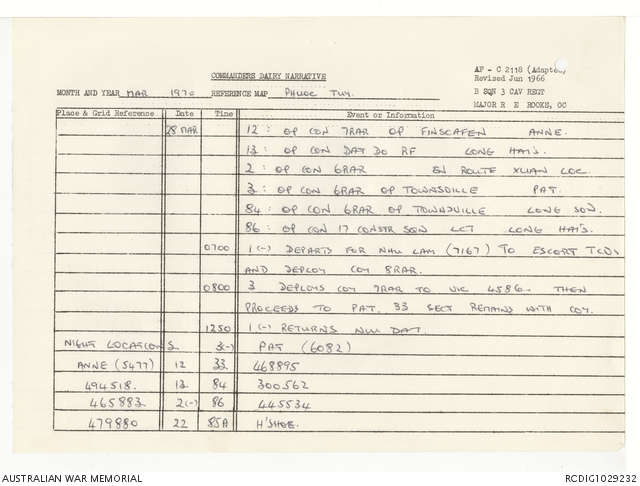 COMMANDERS DAIRY NARRATIVE
AF - C 2118 (Adapted)
Revised Jun 1966
MONTH AND YEAR MAR 1970 REFERENCE MAP PHUOC TUY. B SQN 3 CAV REGT
MAJOR R E ROOKS, OC
Place & Grid Reference Date Time Event or Information
28 MAR 12 : OP CON 7RAR OP FINSCAFEN ANNE.
13 : OP CON DAT DO RF LONG HAI'S.
2 : OP CON 6RAR EN ROUTE XUAN LOC.
3 : OP CON 6RAR OP TOWNSVILLE PAT.
84 : OP CON 6RAR OP TOWNSVILLE LONG SON.
86 : OP CON 17 CONSTR SQN LCT LONG HAI'S.
0700 1 (-) DEPARTS FOR NHU LAM (7167) TO ESCORT TCV's
AND DEPLOY COY 8RAR.
0800 3 DEPLOYS COY 7RAR TO VIC 4586. THEN
PROCEEDS TO PAT. 33 SECT REMAINS WITH COY.
1250 1 (-) RETURNS NUI DAT.
NIGHT LOCATIONS 3(-) PAT (6082)
ANNE (5477) 12 33 468895
494518. 13 84 300562
465883 2(-) 86 445534
479880 22 85A H'SHOE.
AUSTRALIAN WAR MEMORIAL RCDIG1029232